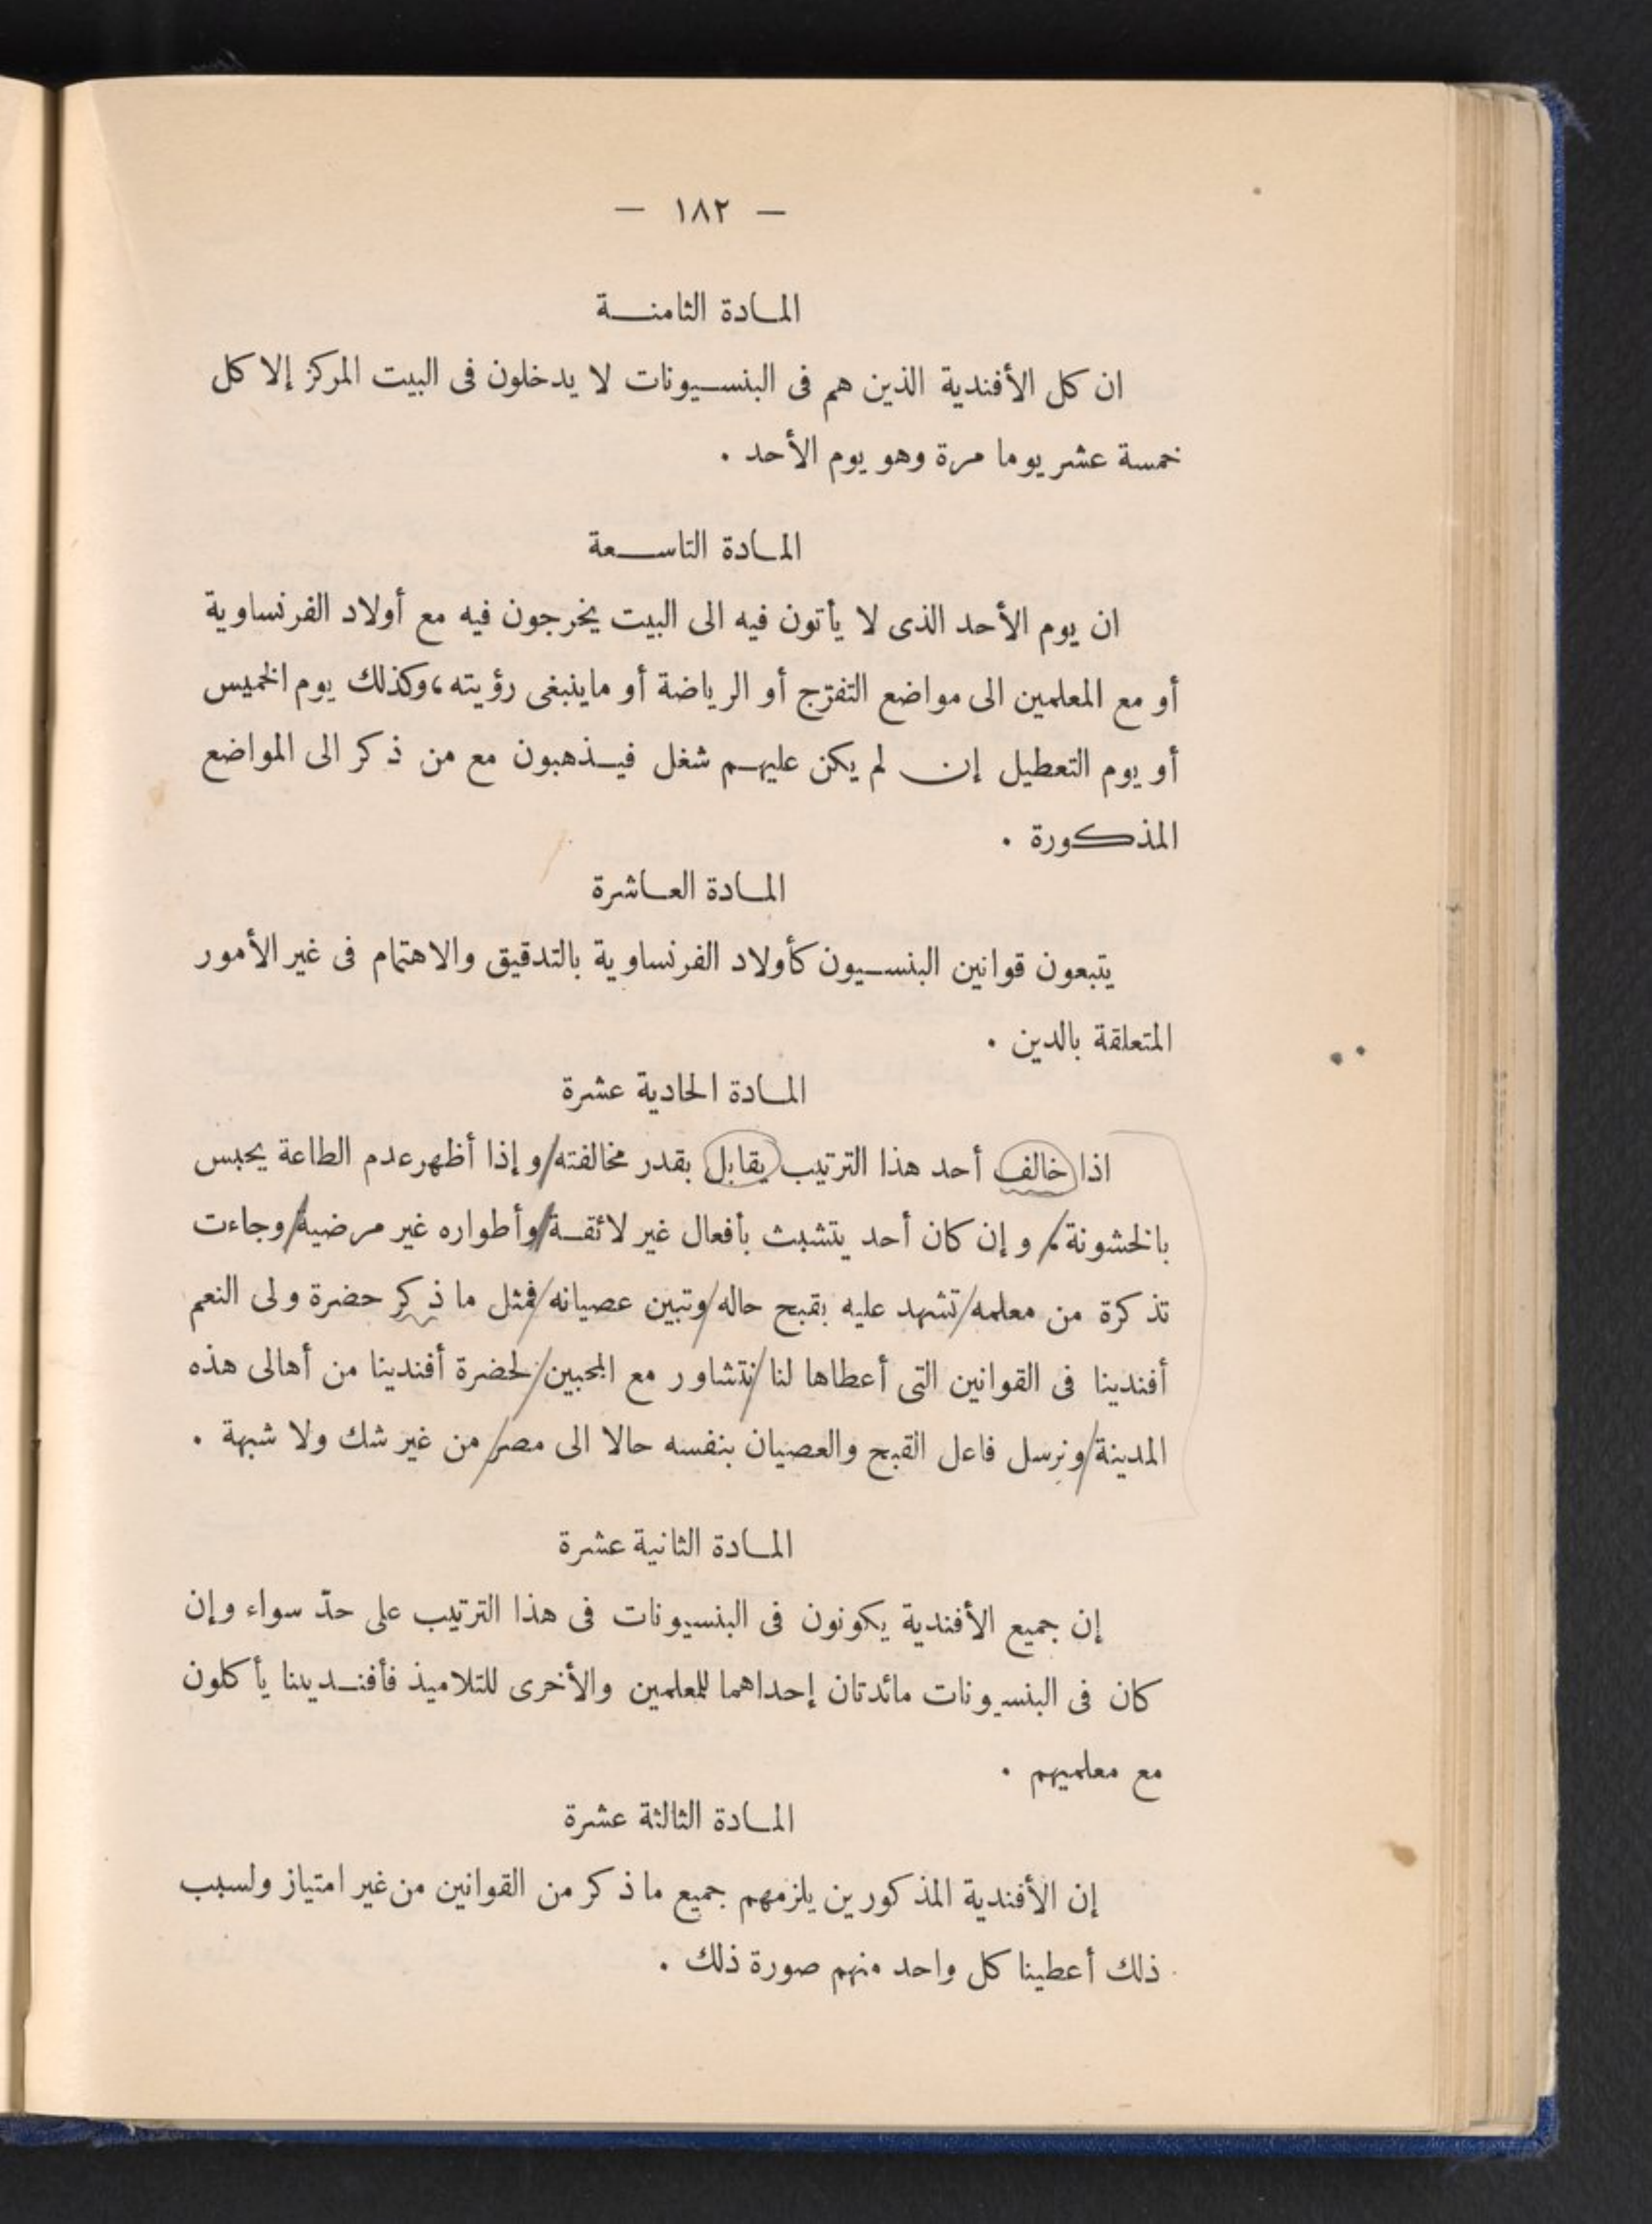 — ١٨٢ —
المادة الثامنة
ان كل الأفندية الذين هم فى البنسيونات لا يدخلون فى البيت المركز إلا كل
خمسة عشر يوما مرة وهو يوم الأحد .
المادة التاسعة
ان يوم الأحد الذى لا يأتون فيه الى البيت يخرجون فيه مع أولاد الفرنساوية
أو مع المعلمين الى مواضع التفرّج أو الرياضة أو ماينبغى رؤيته، وكذلك يوم الخميس
أو يوم التعطيل إن لم يكن عليهم شغل فيذهبون مع من ذكر الى المواضع
المذكورة .
المادة العاشرة
يتبعون قوانين البنسيون كأولاد الفرنساوية بالتدقيق والاهتمام فى غير الأمور
المتعلقة بالدين .
المادة الحادية عشرة
اذا خالف أحد هذا الترتيب يقابل بقدر مخالفته/ و إذا أظهر عدم الطاعة يحبس
بالخشونة،/ و إن كان أحد يتشبث بأفعال غير لائقة/ وأطواره غير مرضية/ وجاءت
تذكرة من معلمه/ تشهد عليه بقبح حاله/ وتبين عصيانه/ فمثل ما ذكر حضرة ولى النعم
أفندينا فى القوانين التى أعطاها لنا/ نتشاور مع المحبين/ لحضرة أفندينا من أهالى هذه
المدينة/ ونرسل فاعل القبح والعصيان بنفسه حالا الى مصر/ من غير شك ولا شبهة .
المادة الثانية عشرة
إن جميع الأفندية يكونون فى البنسيونات فى هذا الترتيب على حدّ سواء وإن
كان فى البنسيونات مائدتان إحداهما للمعلمين والأخرى للتلاميذ فأفنديينا يأكلون
مع معلميهم .
المادة الثالثة عشرة
إن الأفندية المذكورين يلزمهم جميع ما ذكر من القوانين من غير امتياز ولسبب
ذلك أعطينا كل واحد منهم صورة ذلك .